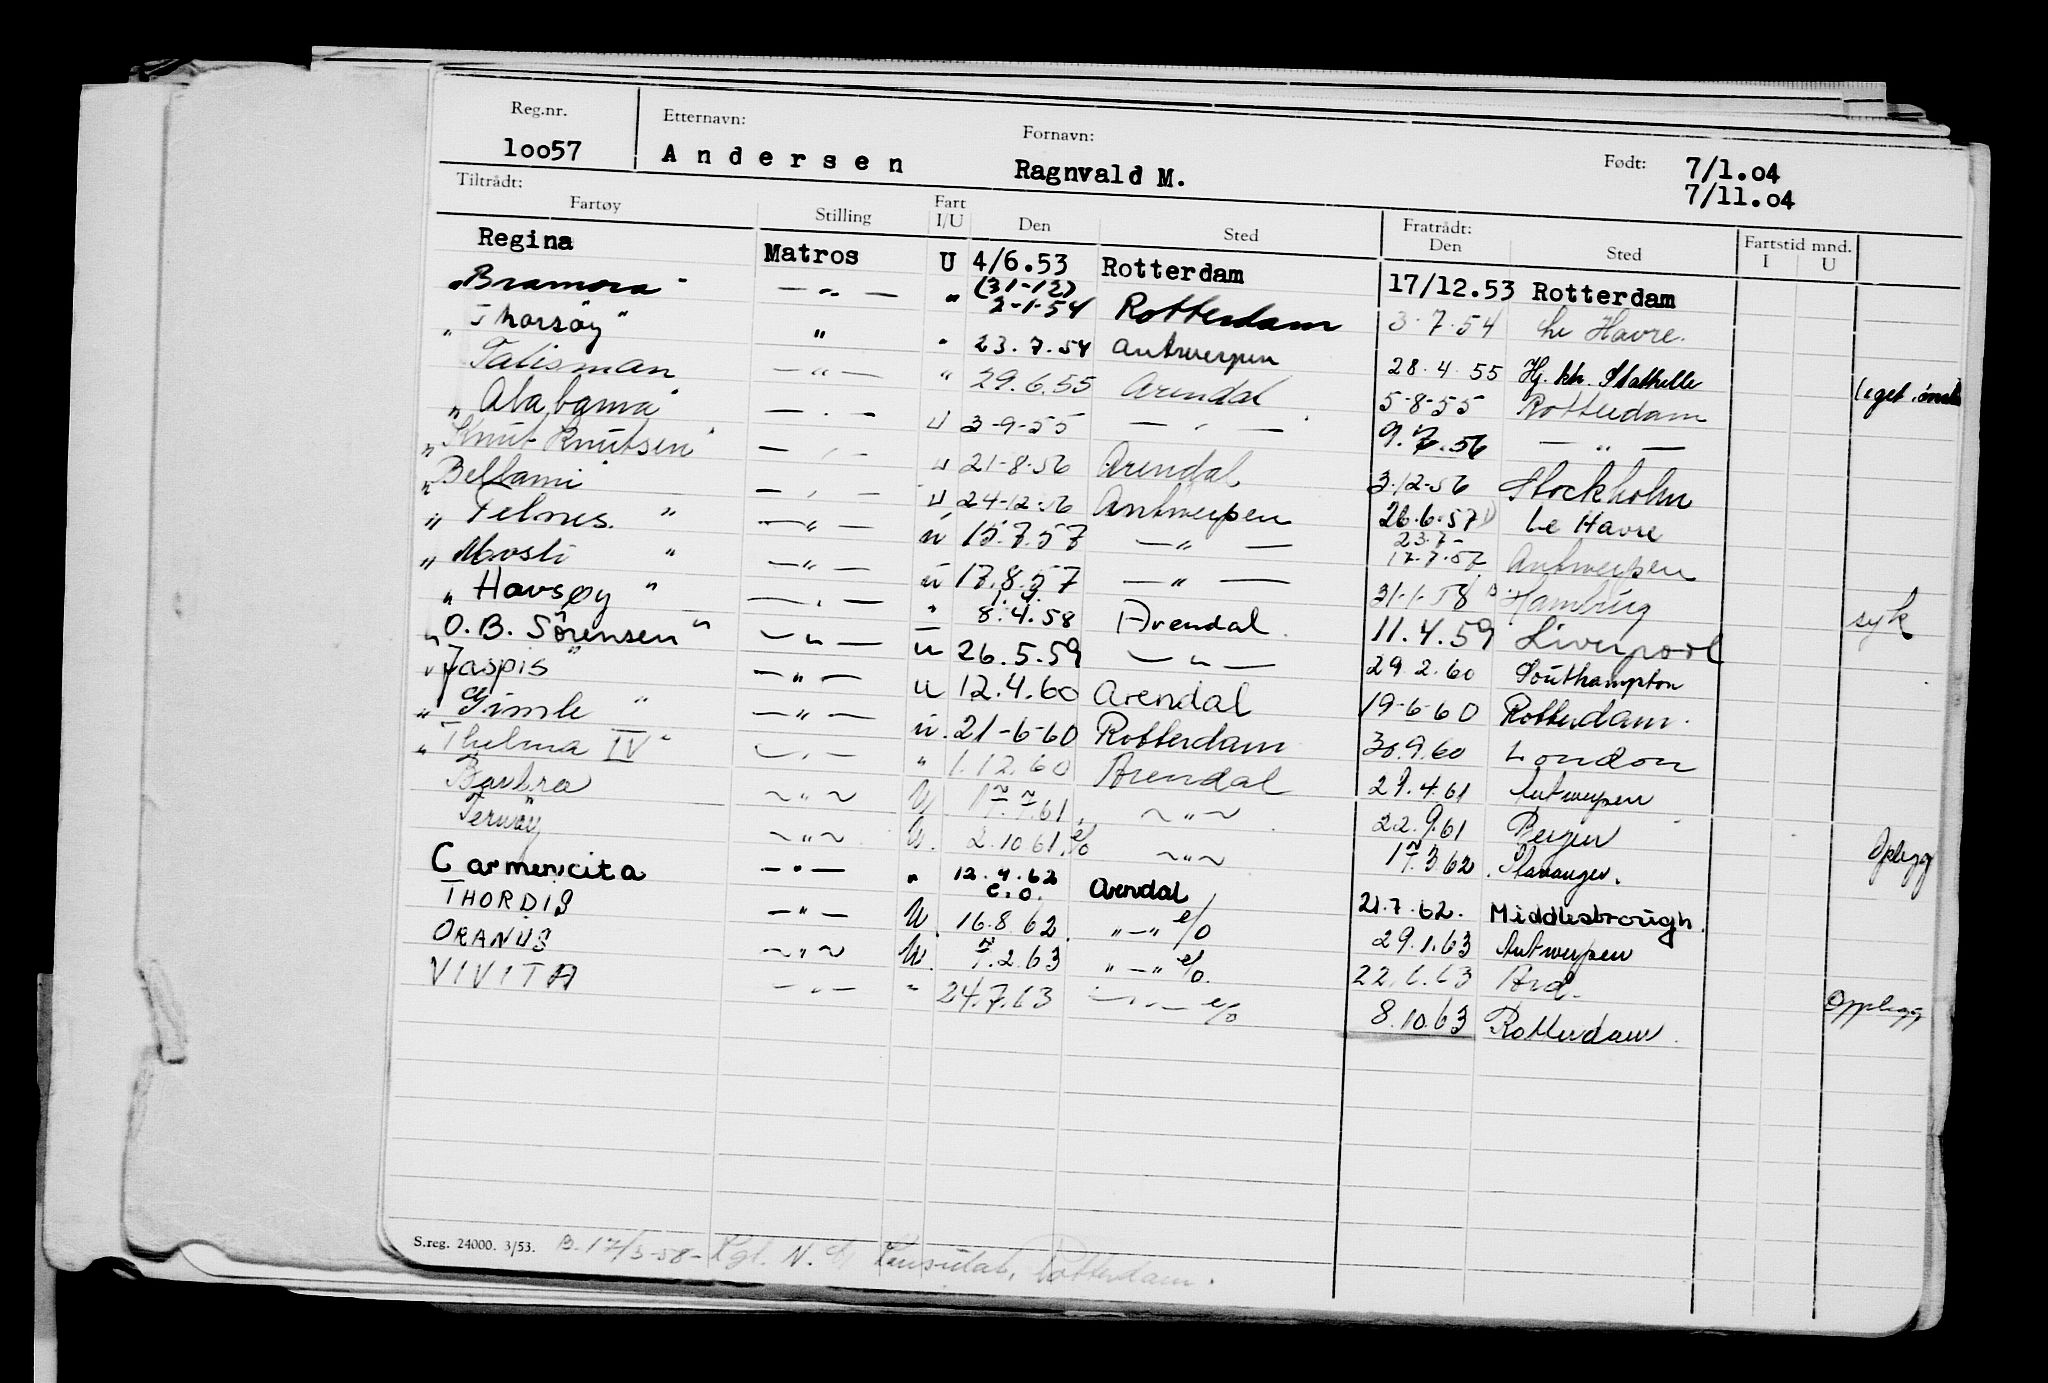 Reg.nr. Etternavn: Fornavn: Født:
10057 Andersen Ragnvald M. 7/1.04
7/11.04
Tiltrådt: Fratrådt:
Fartøy Stilling Fart I/U Den Sted Den Sted Fartstid mnd. I U
Regina Matros U 4/6.53 Rotterdam 17/12.53 Rotterdam
"Bramora" — " — " (31-12) 2-1-54 Rotterdam 3.7.54 Le Havre.
"Thorsøy" " " 23.7.54 Antwerpen 28.4.55 Hj. kh. Stathelle (eget ønske
Talisman — " — " 29.6.55 Arendal 5-8-55 Rotterdam
"Alabama" — " — U 3-9-55 — " — 9.7.56 — " —
"Knut Knutsen" — " — U 21-8-56 Arendal 3-12-56 Stockholm
"Bellami — " — U 24-12-56 Antwerpen 26.6.57 Le Havre
"Telnes." — " — U 15.7.57 — " — 23.7- 17.7.57 Antwerpen
"Mosli" — " — U 17.8.57 — " — 31-1-58 Hamburg syk
"Havsøy" — " — " 8.4.58 Arendal. 11.4.59 Liverpool
"O.B. Sörensen" — " — U 26.5.59 — " — 29.2.60 Southampton
"Jaspis" — " — U 12.4.60 Arendal 19-6-60 Rotterdam.
"Gimle" — " — U. 21-6-60 Rotterdam 30.9.60 London
"Thelma IV" — " — " 1.12.60 Arendal 29.4.61 Antwerpen
Barbra ~ " ~ U 1.7.61. ~ " ~ 22.9.61 Bergen Oplegg
Fernøy ~ " ~ U. 2.10.61. e/o ~ " ~ 1.3.62. Stavanger.
Carmencita — " — " 12.4.62 e.o. Arendal 21.7.62. Middlesbrough.
THORDIS — " — U. 16.8.62. " — " e/o 29.1.63 Antwerpen
ORANUS ~ " ~ U. 7.2.63 " — " e/o. 22.6.63 Ard. Opplegg
VIVITA — " — " 24.7.63 — " — e/o 8.10.63 Rotterdam.
S.reg. 24000. 3/53. B. 17/3-58- Kgl. N. Konsulat, Rotterdam.